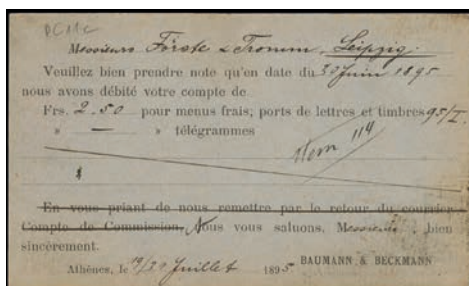 DC11c
Messieurs Förste & Tromm, Leipzig.
Veuillez bien prendre note qu'en date du 30 Juin 1895
nous avons débité votre compte de
Frs. 2.50 pour menus frais; ports de lettres et timbres 95/I.
» — » télégrammes
114
En vous priant de nous remettre par le retour du courrier
Compte de Commission, Nous vous saluons, Messieurs, bien
sincèrement.
Athènes, le 19/20 Juillet 1895 BAUMANN & BECKMANN